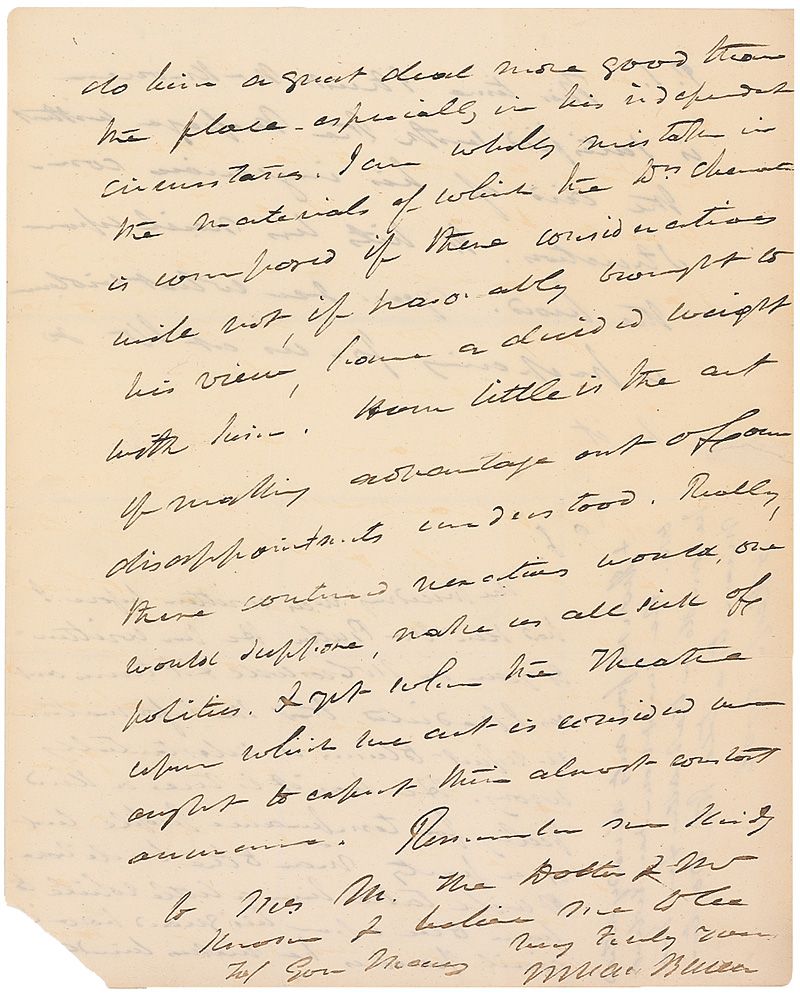 do him a great deal more good than
the place - especially in his independent
circumstances. I am wholly mistaken in
the materials of which the Drs
is composed if these considerations
will not, if favorably brought to
his view, have a decided weight
with him. How little is the art
of making advantage out of our
disappointments understood. Really,
these continued vexations would, one
would suppose, make us all sick of
politics. & yet when the Theatre
upon which we act is considered we
ought to expect their almost constant
occurrence. Remember me kindly
to Mrs M. The Doctor & Mr
Knower & believe me to be
very truly yours
To/ Gov Marcy M Van Buren